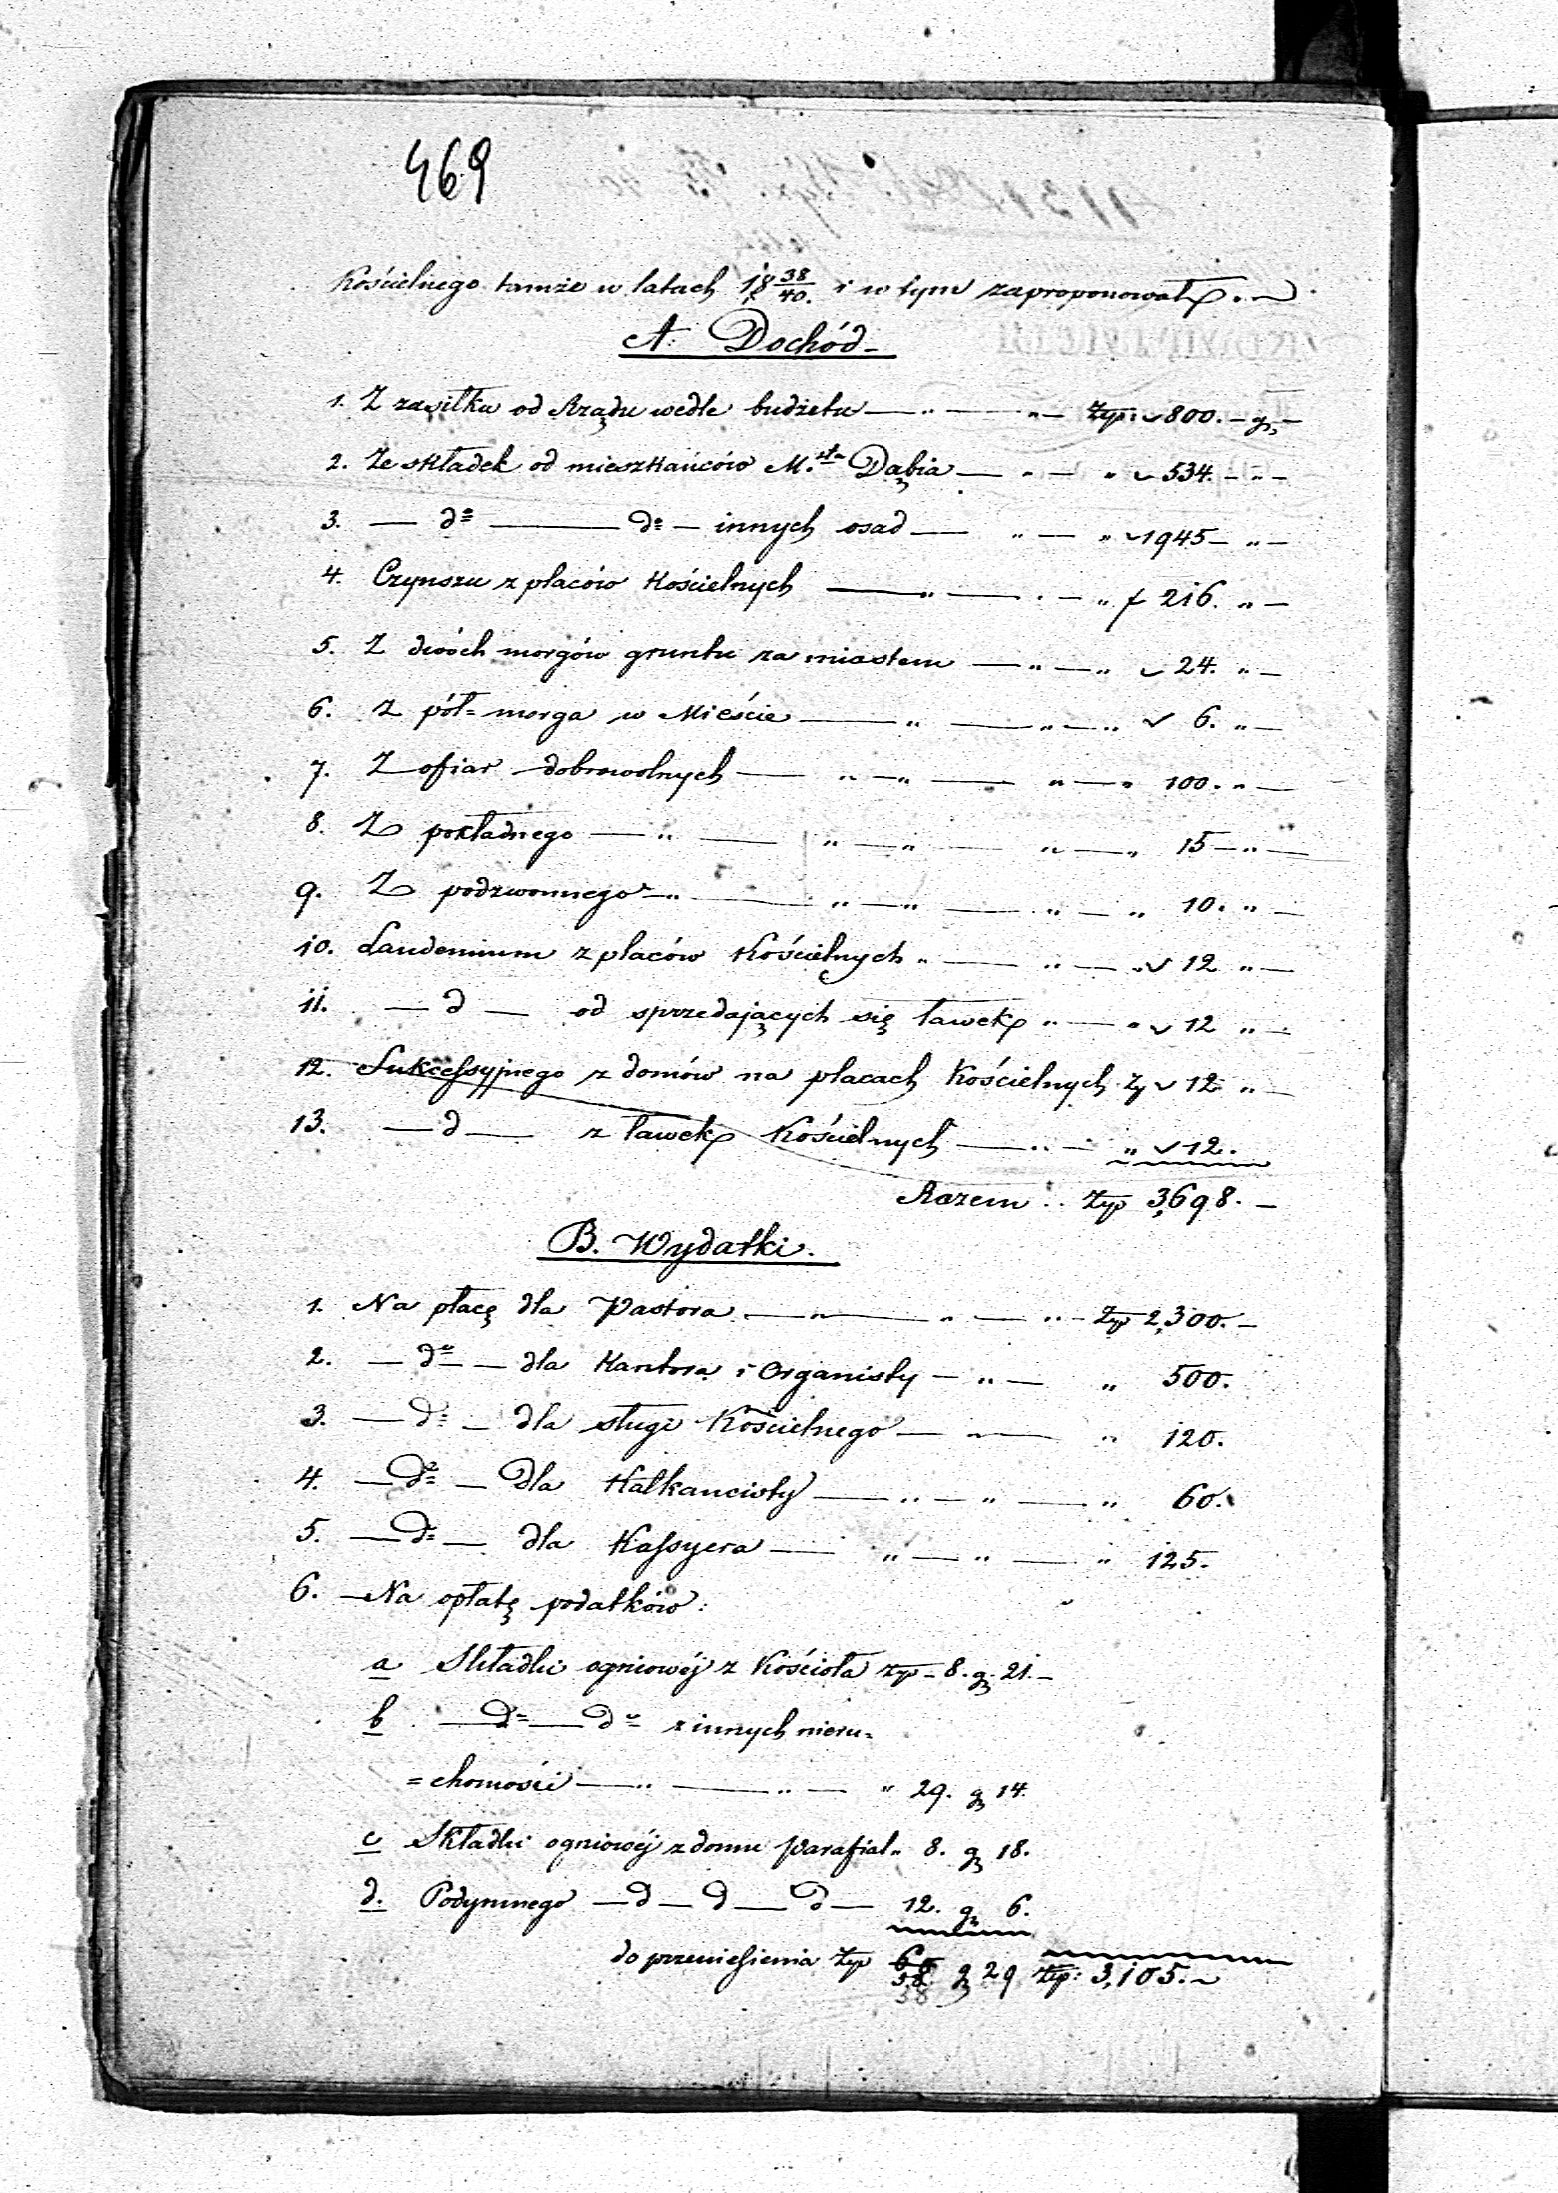 469
Kościelnego tamże w latach 18 38/40. i w tym zaproponował.
A. Dochód
1. Z zasiłku od Rządu wedle budżetu — " — " — Złp: 800. — gr —
2. Ze składek od mieszkańców M.sta Dąbia — " — " 534. — " —
3. — do — do — innych osad — " — " 1945 — " —
4. Czynszu z placów Kościelnych — " — " — " 216. " —
5. Z dwóch morgów gruntu za miastem — " — " 24. " —
6. Z pół= morga w Mieście — " — " — " 6. " —
7. Z ofiar dobrowolnych — " — " — " — " 100. " —
8. Z pokładnego — " — " — " — " — " 15 — " —
9. Z podzwonnego — " — " — " — " — " 10. " —
10. Laudemium z placów Kościelnych " — " — " 12 " —
11. — d — od sprzedających się ławek " — " 12 " —
12. Sukcessyjnego z domów na placach Kościelnych Zł 12 " —
13. — d — z ławek Kościelnych — " — " 12.
Razem .. Złp 3,698. —
B. Wydatki.
1. Na płacę dla Pastora — " — " — " — Złp 2,300. —
2. — do — dla Kantora i Organisty — " — " 500.
3. — do — dla sługi Kościelnego — " — " 120.
4. — do — Dla Kalkancisty — " — " — " 60.
5. — do — dla Kassyera — " — " — " 125.
6. — Na opłatę podatków:
a Składki ogniowéj z Kościoła złp — 8. gr 21. —
b. — do — do z innych nieru=
=chomości — " — " — " 29. gr 14.
c Składki ogniowéj z domu Parafial " 8. gr 18.
d. Podymnego — d — d — d — 12. gr 6.
do przeniesienia Złp 58 gr 29 Złp: 3,105. —
38